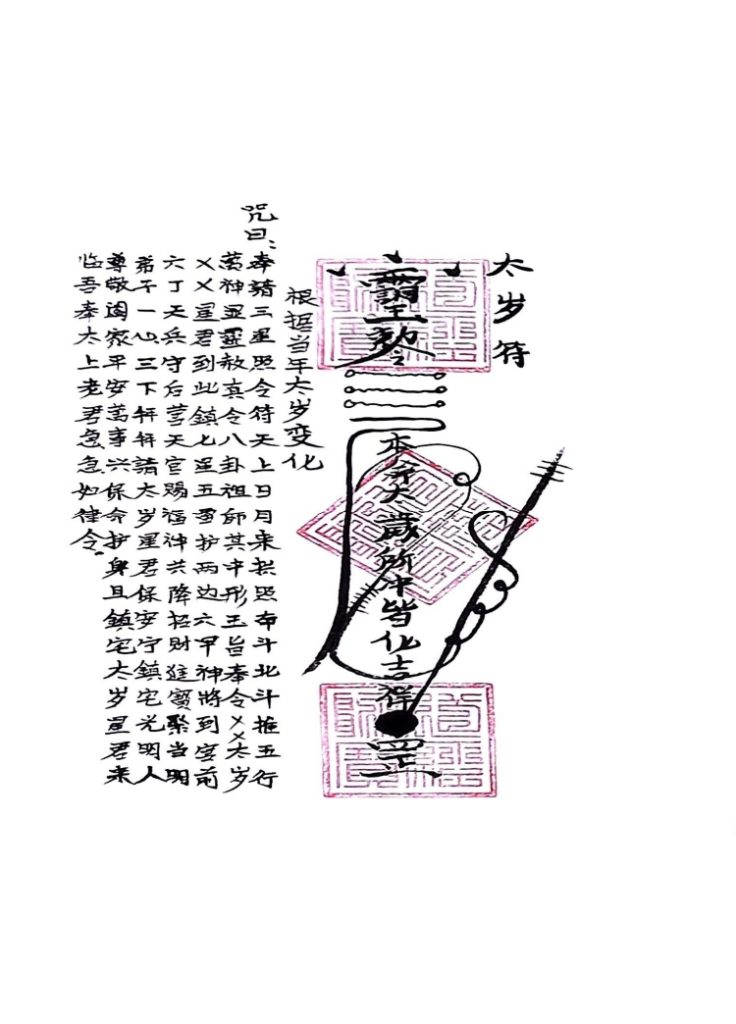 太岁符
奉令太歲所冲皆化吉祥
罡
根据当年太岁变化
咒曰：
奉請三星照令符天上日月来拱照南斗北斗推五行
萬神显靈赦真令八卦祖師其中形玉旨奉令××太岁
××星君到此鎮七星五雷护两边六甲神將到宝前
六丁天兵守后营天官赐福神共降招财進寶聚当明
弟子一心三下拜拜請太岁星君保安宁鎮宅光明人
尊敬阖家平安萬事兴保命护身且鎮宅太岁星君来
临吾奉太上老君急急如律令。